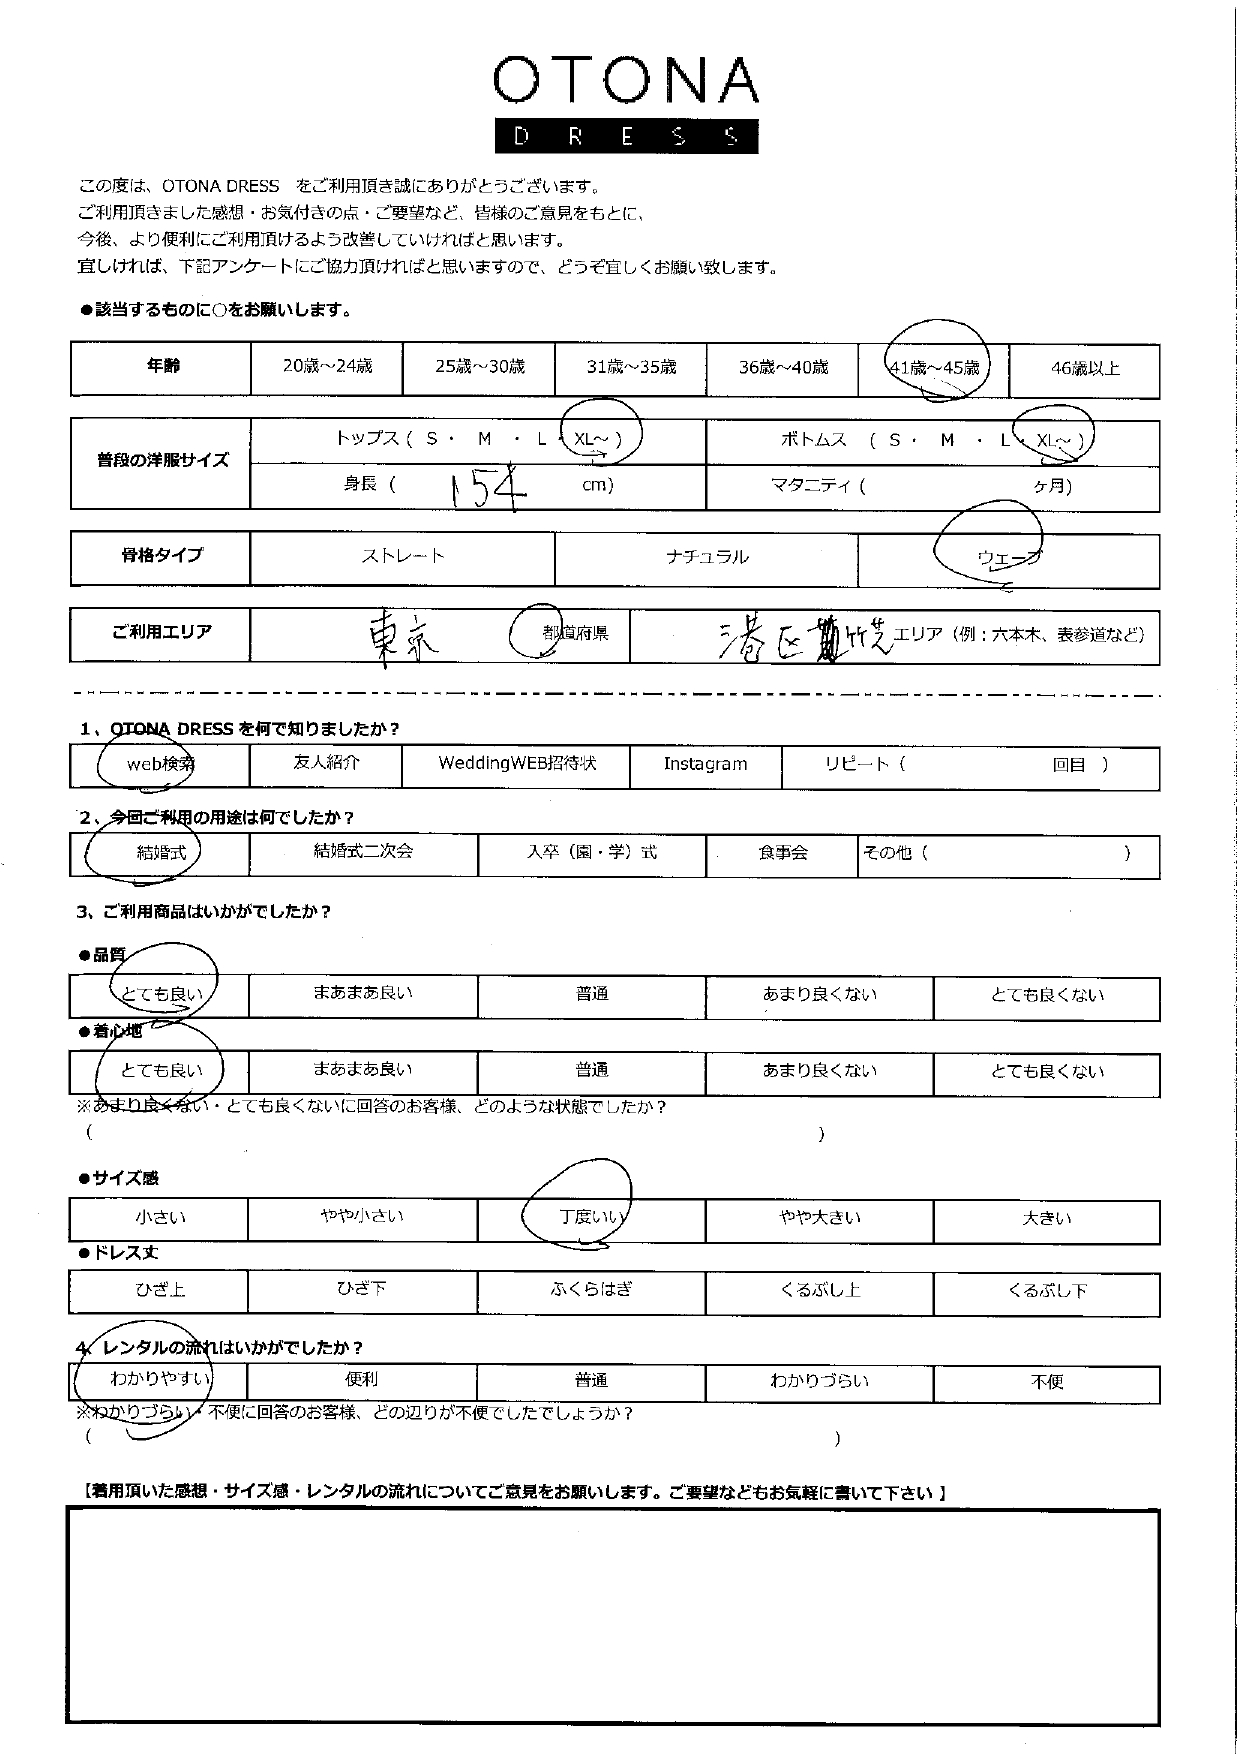 OTONA
DRESS
この度は、OTONA DRESS をご利用頂き誠にありがとうございます。
ご利用頂きました感想・お気付きの点・ご要望など、皆様のご意見をもとに、
今後、より便利にご利用頂けるよう改善していければと思います。
宜しければ、下記アンケートにご協力頂ければと思いますので、どうぞ宜しくお願い致します。
●該当するものに○をお願いします。
年齢 20歳～24歳 25歳～30歳 31歳～35歳 36歳～40歳 41歳～45歳 46歳以上
普段の洋服サイズ トップス ( S ・ M ・ L ・ XL～ ) ボトムス ( S ・ M ・ L ・ XL～ )
身長 ( 154 cm) マタニティ ( ヶ月)
骨格タイプ ストレート ナチュラル ウェーブ
ご利用エリア 東京 都道府県 港区 竹芝 エリア（例：六本木、表参道など）
1、OTONA DRESS を何で知りましたか？
web検索 友人紹介 WeddingWEB招待状 Instagram リピート ( 回目 )
2、今回ご利用の用途は何でしたか？
結婚式 結婚式二次会 入卒（園・学）式 食事会 その他 ( )
3、ご利用商品はいかがでしたか？
●品質
とても良い まあまあ良い 普通 あまり良くない とても良くない
●着心地
とても良い まあまあ良い 普通 あまり良くない とても良くない
※あまり良くない・とても良くないに回答のお客様、どのような状態でしたか？
( )
●サイズ感
小さい やや小さい 丁度いい やや大きい 大きい
●ドレス丈
ひざ上 ひざ下 ふくらはぎ くるぶし上 くるぶし下
4、レンタルの流れはいかがでしたか？
わかりやすい 便利 普通 わかりづらい 不便
※わかりづらい・不便に回答のお客様、どの辺りが不便でしたでしょうか？
( )
【着用頂いた感想・サイズ感・レンタルの流れについてご意見をお願いします。ご要望などもお気軽に書いて下さい 】